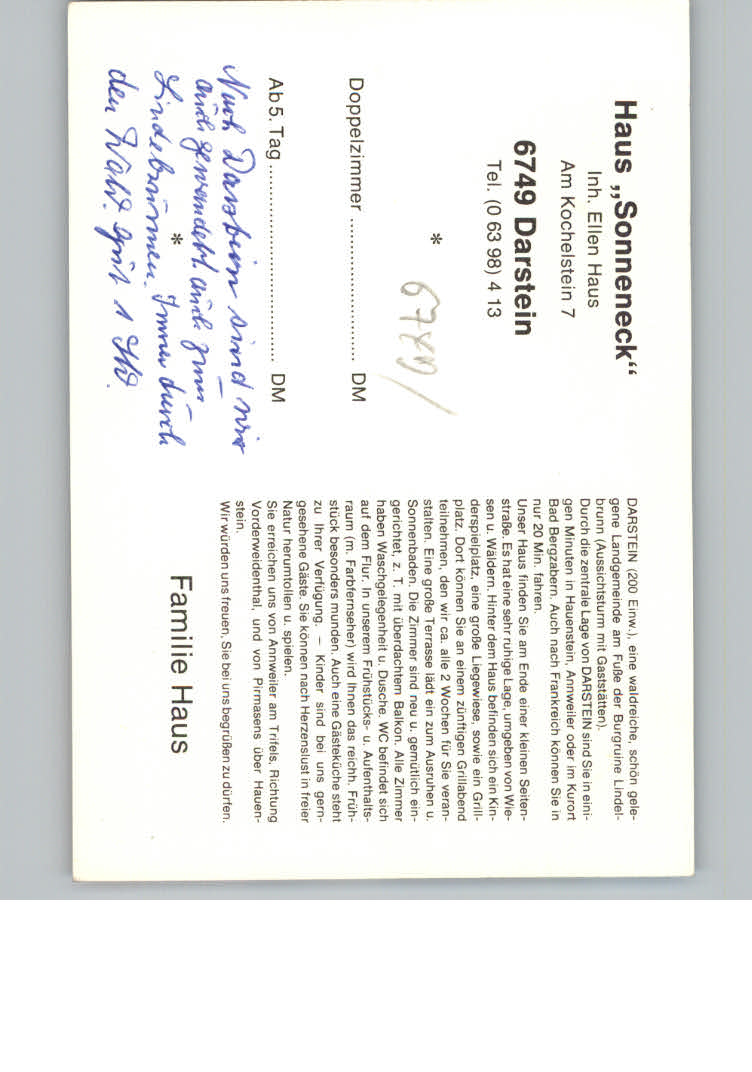 Haus „Sonneneck“
Inh. Ellen Haus
Am Kochelstein 7
6749 Darstein
Tel. (0 63 98) 4 13
*
6780/
Doppelzimmer ............................ DM
Ab 5. Tag ...................................... DM
*
Nach Darstein sind wir
auch gewandert auch zum
Lindebrunnen. Immer durch
den Wald. gut 1 Std.
DARSTEIN (200 Einw.), eine waldreiche, schön gele-
gene Landgemeinde am Fuße der Burgruine Lindel-
brunn (Aussichtsturm mit Gaststätten).
Durch die zentrale Lage von DARSTEIN sind Sie in eini-
gen Minuten in Hauenstein, Annweiler oder im Kurort
Bad Bergzabern. Auch nach Frankreich können Sie in
nur 20 Min. fahren.
Unser Haus finden Sie am Ende einer kleinen Seiten-
straße. Es hat eine sehr ruhige Lage, umgeben von Wie-
sen u. Wäldern. Hinter dem Haus befinden sich ein Kin-
derspielplatz, eine große Liegewiese, sowie ein Grill-
platz. Dort können Sie an einem zünftigen Grillabend
teilnehmen, den wir ca. alle 2 Wochen für Sie veran-
stalten. Eine große Terrasse lädt ein zum Ausruhen u.
Sonnenbaden. Die Zimmer sind neu u. gemütlich ein-
gerichtet, z. T. mit überdachtem Balkon. Alle Zimmer
haben Waschgelegenheit u. Dusche. WC befindet sich
auf dem Flur. In unserem Frühstücks- u. Aufenthalts-
raum (m. Farbfernseher) wird Ihnen das reichh. Früh-
stück besonders munden. Auch eine Gästeküche steht
zu Ihrer Verfügung. — Kinder sind bei uns gern-
gesehene Gäste. Sie können nach Herzenslust in freier
Natur herumtollen u. spielen.
Sie erreichen uns von Annweiler am Trifels, Richtung
Vorderweidenthal, und von Pirmasens über Hauen-
stein.
Wir würden uns freuen, Sie bei uns begrüßen zu dürfen.
Familie Haus